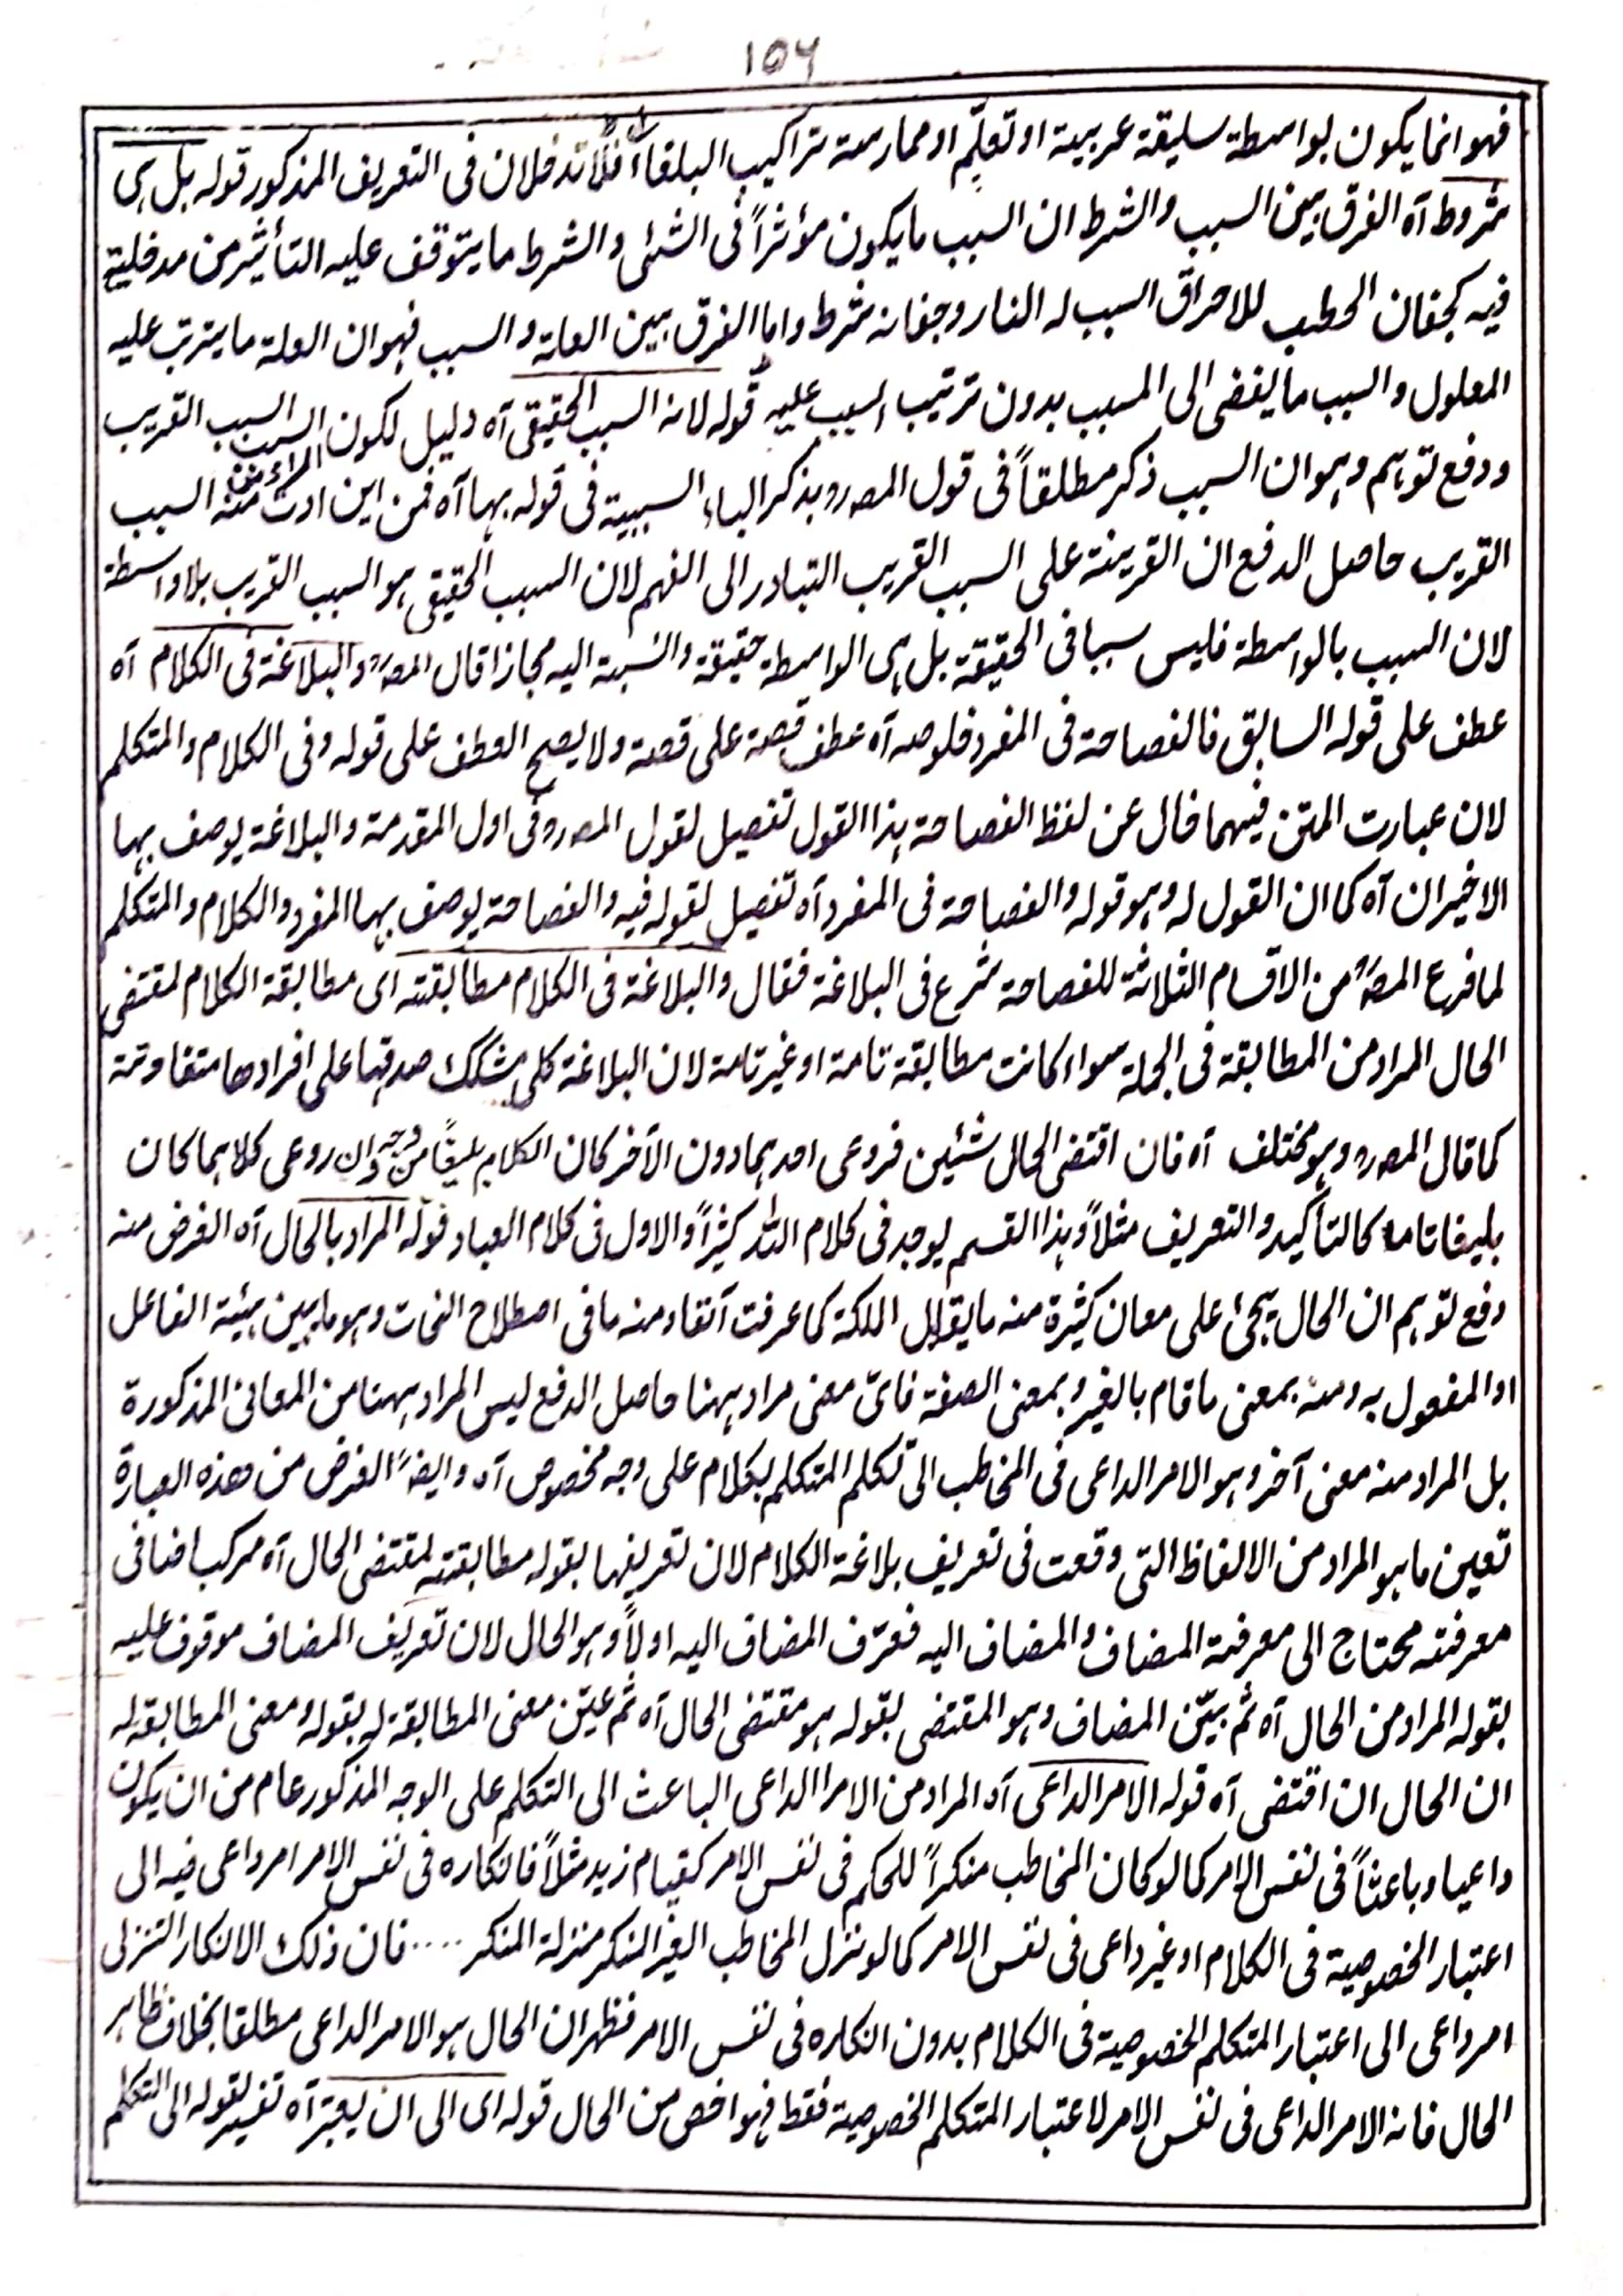 ١٥٦
فهو انما يكون بواسطة سليقة عربية او تعلّم او ممارسة تراكيب البلغاء فلا تدخلان فى التعريف المذكور قوله بل هى
شروط آه الفرق بين السبب والشرط ان السبب ما يكون مؤثراً فى الشئى والشرط ما يتوقف عليه التأثير من مدخلية
فيه كجفان الحطب للاحراق السبب له النار وجفانه شرط واما الفرق بين العلة والسبب فهو ان العلة ما يترتب عليه
المعلول والسبب ما يفضى الى المسبب بدون ترتيب المسبب عليه قوله لانه السبب الحقيقى آه دليل لكون السبب السبب القريب
ودفع توهم وهو ان السبب ذكر مطلقاً فى قول المصرو بذكر الباء السببية فى قوله بها آه فمن اين ادت منه السبب
القريب حاصل الدفع ان القرينة على السبب القريب التبادر الى الفهم لان السبب الحقيقى هو السبب القريب بلا واسطة
لان السبب بالواسطة فليس سببا فى الحقيقة بل هى الواسطة حقيقة والنسبة اليه مجازا قال المصر والبلاغة فى الكلام آه
عطف على قوله السابق فالفصاحة فى المفرد خلوصه آه عطف قصة على قصة ولا يصح العطف على قوله وفى الكلام والمتكلم
لان عبارت المتن فيهما خال عن لفظ الفصاحة هذا القول تفصيل لقول المصرو فى اول المقدمة والبلاغة يوصف بها
الاخيران آه كما ان القول له وهو قوله والفصاحة فى المفرد آه تفصيل لقوله فيه والفصاحة يوصف بها المفرد والكلام والمتكلم
لما فرع المصر من الاقسام الثلاثة للفصاحة شرع فى البلاغة فقال والبلاغة فى الكلام مطابقته اى مطابقة الكلام لمقتضى
الحال المراد من المطابقة فى الجملة سواء كانت مطابقة تامة او غير تامة لان البلاغة كلى مشكك صدقها على افرادها متفاوتة
كما قال المصرو وهو مختلف آه فان اقتضى الحال شئين فروعى احدهما دون الآخر كان الكلام بليغاً من وجه وان روعى كلاهما كان
بليغا تاما كالتأكيد والتعريف مثلاً وهذا القسم يوجد فى كلام الله كثيراً والاول فى كلام العباد قوله المراد بالحال آه الغرض منه
دفع توهم ان الحال يجئ على معان كثيرة منه ما يقابل الملكة كما عرفت آنفا ومنه ما فى اصطلاح النحات وهو ما يبين هيئة الفاعل
او المفعول به ومنه بمعنى ما قام بالغير وبمعنى الصفة فاىّ معنى مراد ههنا حاصل الدفع ليس المراد ههنا من المعانى المذكورة
بل المراد منه معنى آخر وهو الامر الداعى فى المخاطب الى تكلم المتكلم بكلام على وجه مخصوص آه وايضاً الغرض من هذه العبارة
تعين ما هو المراد من الالفاظ التى وقعت فى تعريف بلاغة الكلام لان تعريفها بقوله مطابقته لمقتضى الحال آه مركب اضافى
معرفته محتاج الى معرفة المضاف والمضاف اليه فعرّف المضاف اليه اولاً وهو الحال لان تعريف المضاف موقوف عليه
بقوله المراد من الحال آه ثم بيّن المضاف وهو المقتضى بقوله هو مقتضى الحال آه ثم عيّن معنى المطابقة له بقوله ومعنى المطابقة له
ان الحال ان اقتضى آه قوله الامر الداعى آه المراد من الامر الداعى الباعث الى التكلم على الوجه المذكور عام من ان يكون
داعيا وباعثاً فى نفس الامر كما لو كان المخاطب منكراً للحكم فى نفس الامر كقيام زيد مثلاً فانكاره فى نفس الامر امر داعى فيه الى
اعتبار الخصوصية فى الكلام او غير داعى فى نفس الامر كما لو نزل المخاطب الغير المنكر منزلة المنكر .... فان ذلك الانكار التنزلى
امر داعى الى اعتبار المتكلم الخصوصية فى الكلام بدون انكاره فى نفس الامر فظهر ان الحال هو الامر الداعى مطلقا بخلاف ظاهر
الحال فانه الامر الداعى فى نفس الامر لاعتبار المتكلم الخصوصية فقط فهو اخص من الحال قوله اى الى ان يعبّر آه تفسير لقوله الى التكلم